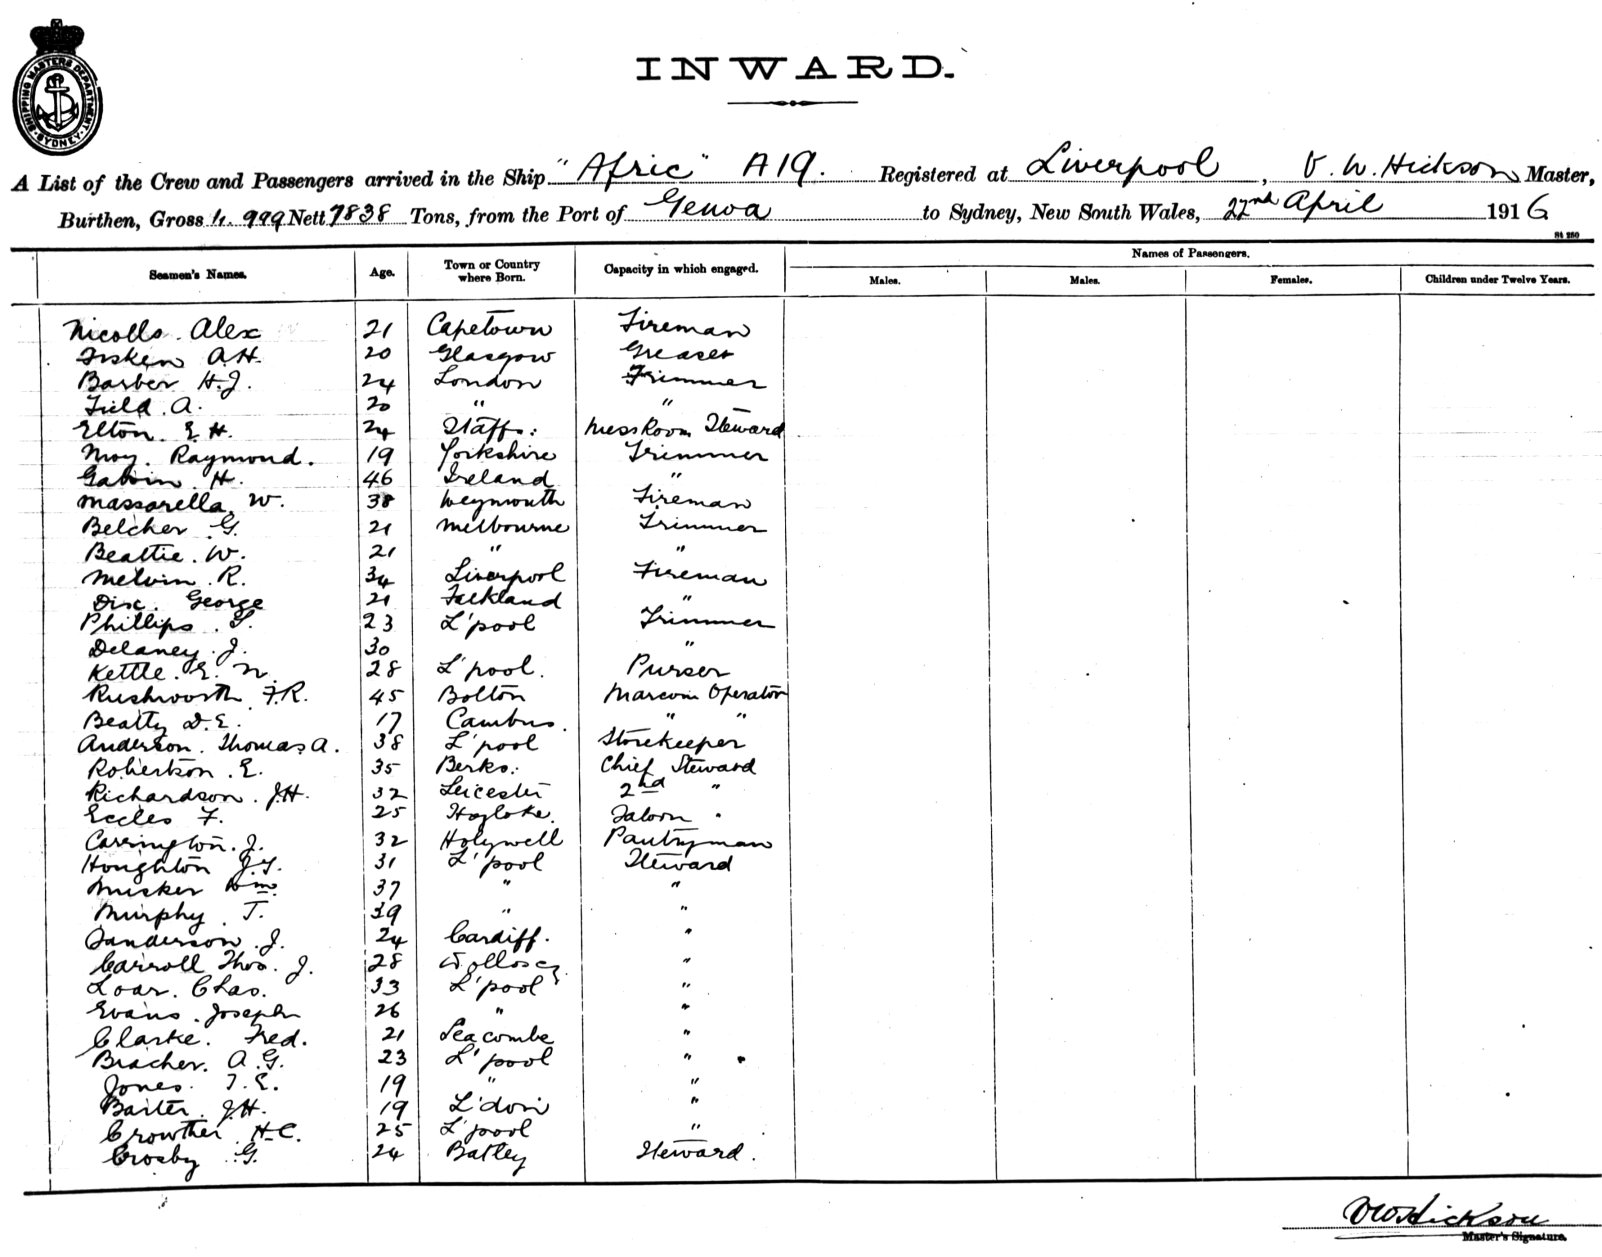 SHIPPING MASTERS DEPARTMENT. SYDNEY
INWARD.
A List of the Crew and Passengers arrived in the Ship "Afric" A19. Registered at Liverpool, V. W. Hickson Master,
Burthen, Gross 11.999 Nett 7838 Tons, from the Port of Genoa to Sydney, New South Wales, 22nd April 1916
St 250
Seamen's Names. Age. Town or Country where Born. Capacity in which engaged. Names of Passengers.
Males. Males. Females. Children under Twelve Years.
Nicolls. Alex 21 Capetown Fireman
A.H. 20 Glasgow Greaser
Barber H.J. 24 London Trimmer
Field. A. 20 " "
Elton. E.H. 24 Staffs: Mess Room Steward
Moy. Raymond. 19 Yorkshire Trimmer
Galvin. H. 46 Ireland "
Massarella. W. 38 Weymouth Fireman
Belcher G. 21 Melbourne Trimmer
Beattie. W. 21 " "
Melvin. R. 34 Liverpool Fireman
George 21 Falkland "
Phillips. 23 L'pool Trimmer
Delaney. J. 30 "
Kettle. E. N. 28 L'pool. Purser
Rushworth F.R. 45 Bolton Marconi Operator
Beatty D.E. 17 Cambus. " "
Anderson. Thomas A. 38 L'pool Storekeeper
Robertson. E. 35 Berks: Chief Steward
Richardson. J.H. 32 Leicester 2nd "
Eccles F. 25 Hoylake. Saloon "
Carrington. J. 32 Holywell Pantryman
Houghton J.T. 31 L'pool Steward
Musker Wm. 37 " "
Murphy. T. 39 " "
Sanderson. J. 24 Cardiff. "
Carroll Thos. J. 28 "
Loar. Chas. 33 L'pool "
Evans. Joseph 26 " "
Clarke. Fred. 21 Seacombe "
Bracher. A.G. 23 L'pool "
Jones. T.E. 19 " "
J.H. 19 L'don "
Crowther H.C. 25 L'pool "
Crosby G. 24 Batley Steward.
VWHickson
Master's Signature.